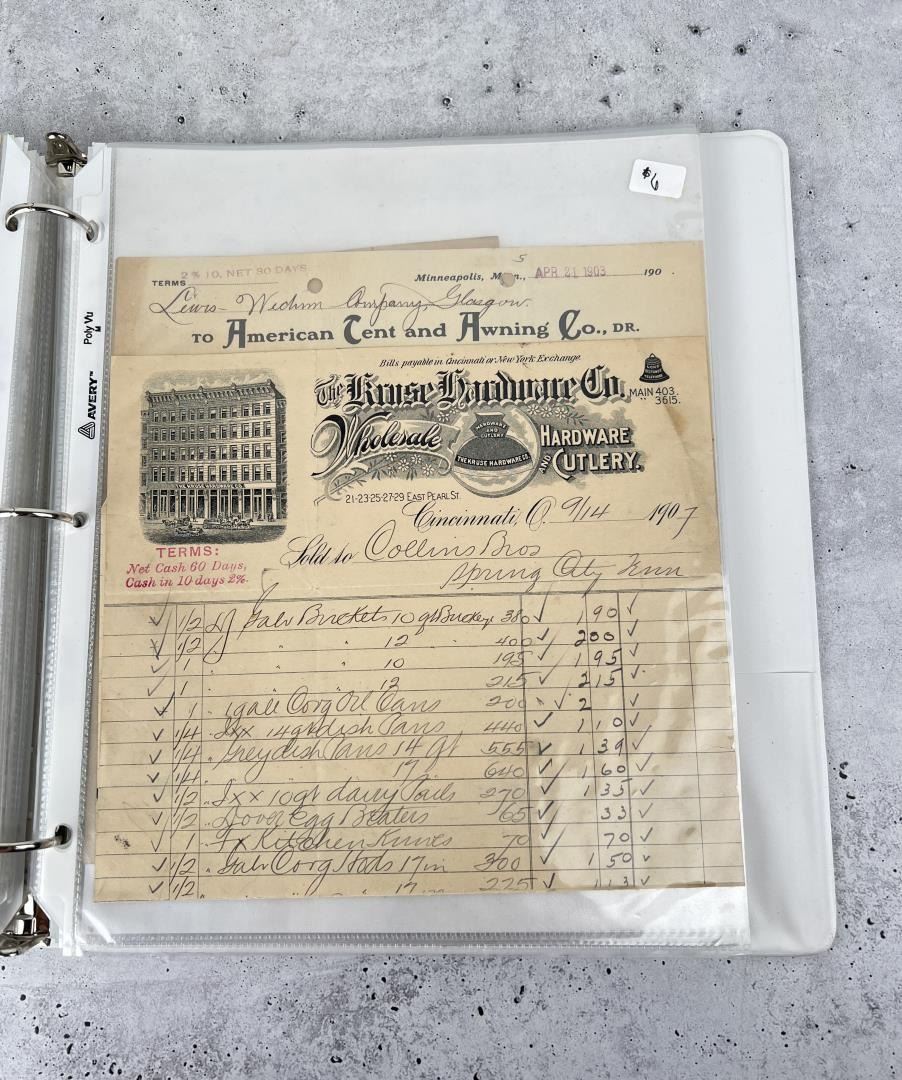 $6
5
TERMS 2% 10, NET 30 DAYS.
Minneapolis, M nn., APR 21 1903 190 .
Lewis- Company, Glasgow.
TO American Tent and Awning Co., DR.
Bills payable in Cincinnati or New York Exchange
The Kruse Hardware Co.
MAIN 403
" 3615.
Wholesale HARDWARE
AND CUTLERY.
HARDWARE AND CUTLERY
THE KRUSE HARDWARE CO.
THE KRUSE HARDWARE CO.
21-23-25-27-29 EAST PEARL ST.
Cincinnati, O. 9/14 1907
TERMS:
Net Cash 60 Days,
Cash in 10 days 2%.
Sold to Collins Bros
Spring City Tenn
✓ 1/2 Dz Galv Buckets 10 qt 380 ✓ 190 ✓
✓ 1/2 " " 12 " 400 ✓ 200 ✓
✓ 1 " " 10 195 ✓ 195 ✓
✓ 1 " " 12 215 ✓ 215 ✓
✓ 1 " 1 gal Corg Oil Cans 200 ✓ 2 ✓
✓ 1/4 " Ixx 14 qt dish Pans 440 ✓ 110 ✓
✓ 1/4 " Grey dish Pans 14 qt 555 ✓ 139 ✓
✓ 1/4 " " 17 640 ✓ 160 ✓
✓ 1/2 " Ixx 10 qt dairy Pails 270 ✓ 135 ✓
✓ 1/2 " Dover Egg Beaters 65 ✓ 33 ✓
✓ 1 " Kitchen Knives 70 ✓ 70 ✓
✓ 1/2 " Galv Corg Hods 17 in 300 ✓ 150 ✓
✓ 1/2 " " " 17 " 225 ✓ 113 ✓
AVERY™ Poly Vu